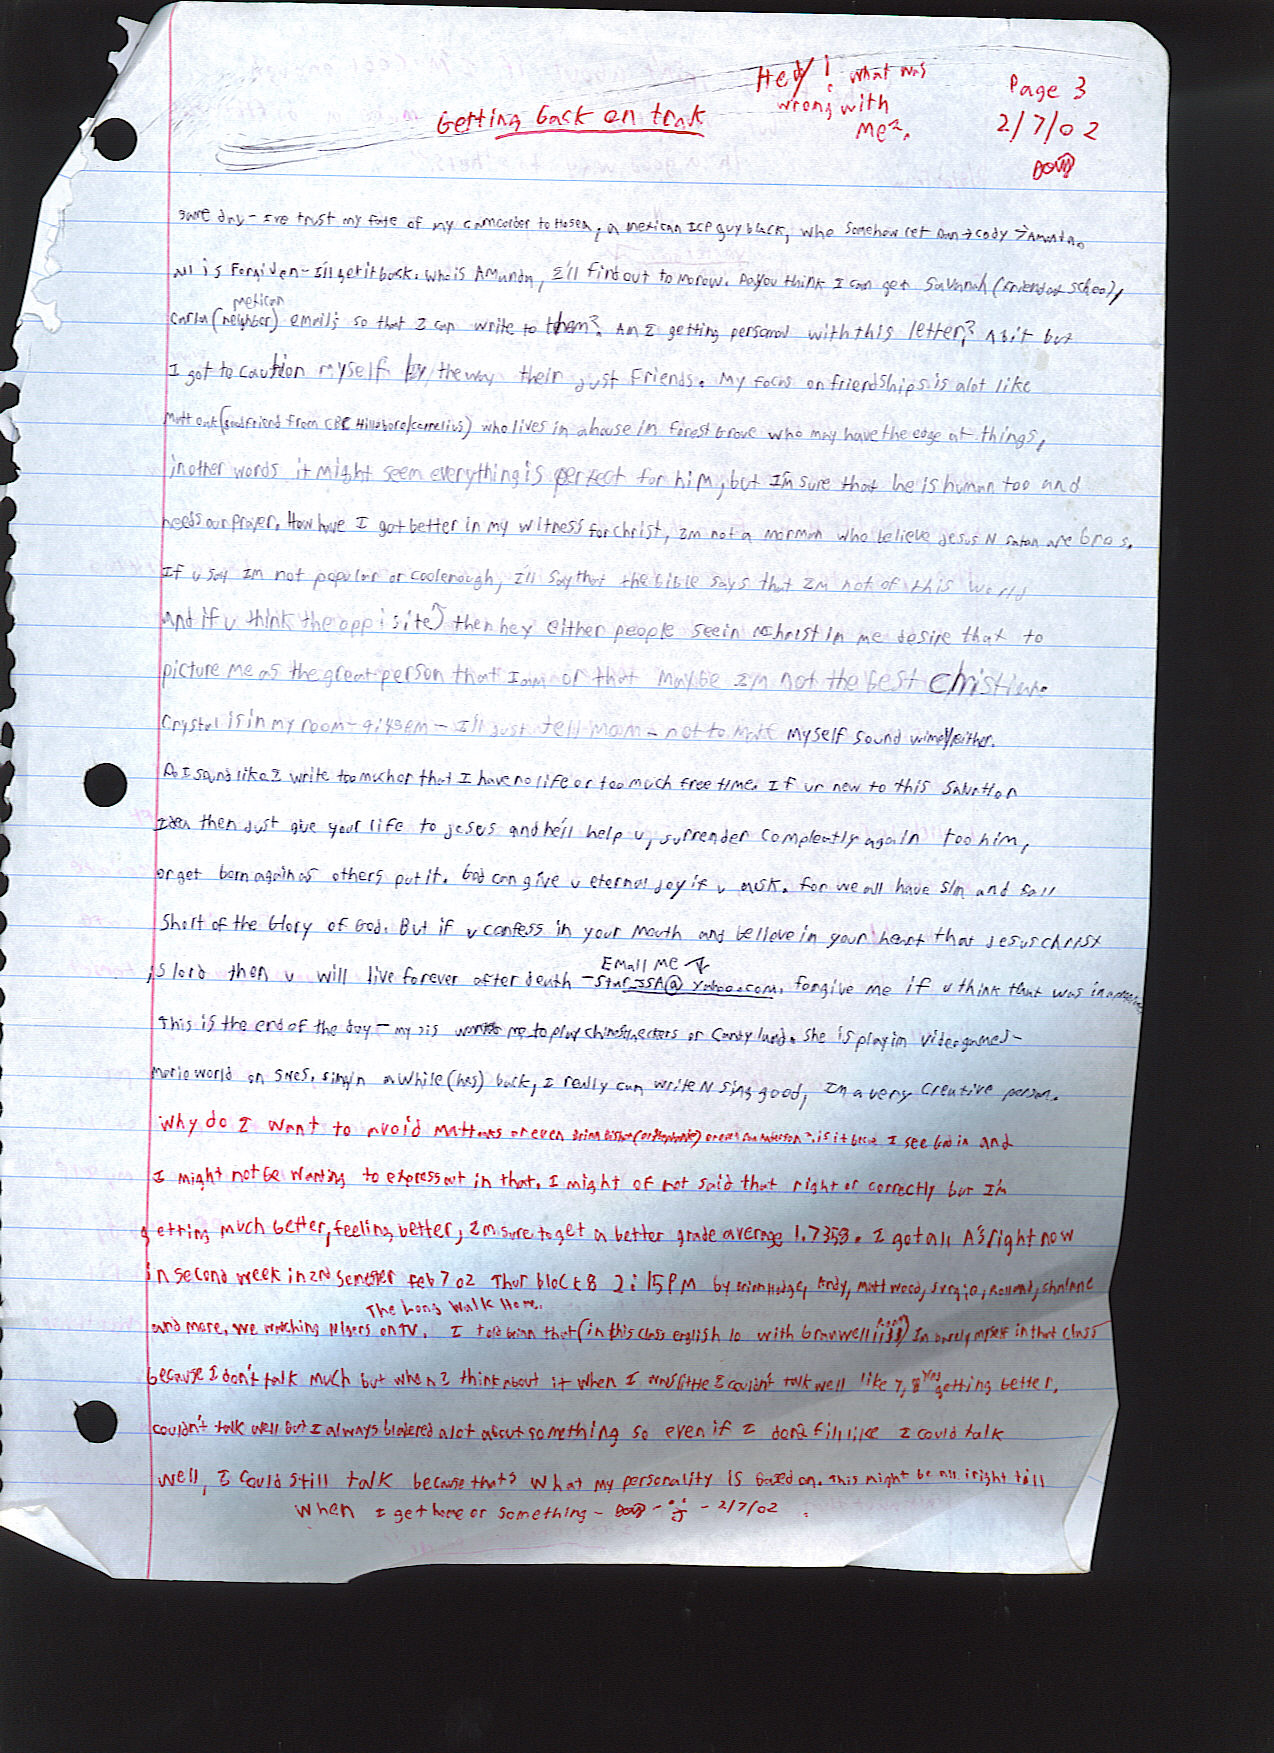 Hey! what was
wrong with
Me?
Page 3
2/7/02
Getting back on trak
same day - I've trust my fate of my camcorder to Hosea, a mexican ICP guy black, who somehow let Dan → cody → Amanda.
All is Forgiven - I'll get it back. Who is Amunda, I'll find out tomorow. Do you think I can get Savanah (friend at school),
mexican
Carla (neighbor) emails so that I can write to them? Am I getting personal with this letter? A bit but
I got to caution myself By the way their just Friends. My focus on friendships is alot like
Matt (good friend from CBC Hillsboro/cornelius) who lives in a house in Forest Grove who may have the edge at things,
in other words it might seem everything is perfect for him, but I'm sure that he is human too and
needs our prayer. How have I got better in my witness for christ, Im not a mormon who believe jesus N satan are bros.
If u say Im not popular or coolenough, I'll say that the bible says that Im not of this world
and if u think the oppisite) then hey either people seein christ in me desire that to
picture me as the great person that I am or that maybe Im not the best christian.
Crystal is in my room - 9:45 - I'll just tell mom - not to make myself sound wimpy either.
Do I sound like I write too much or that I have no life or too much free time. If ur new to this salvation
Idea then Just give your life to jesus and he'll help u, surrender compleatly again too him,
or get born again as others put it. God can give u eternal joy if u ask. for we all have sin and fall
Short of the Glory of God. But if u confess in your mouth and believe in your heart that Jesus christ
Email me
is lord then u will live forever after death - Star_SSA@yahoo.com. forgive me if u think that was
This is the end of the day - my sis wants me to play or Candy land. She is playin videogames -
Mario world on SNES. singin a while (hes) back, I really can write N sing good, Im a very creative person.
Why do I want to avoid Matt or even Brian is it becuz I see God in and
I might not be wanting to express out in that. I might of not said that right or correctly but I'm
getting much better, feeling better, Im sure to get a better grade average 1.7358. I got all A's right now
in second week in 2nd semester feb 7 02 Thur block 8 2:15 PM by Brian Hodge, Andy, Matt Wood, Sergio,
The Long Walk Home.
and more, we watching on TV. I told brian that (in this class english 10 with Granwell) Im barely myself in that class
because I don't talk much but when I think about it when I was little I couldn't talk well like 7, 8 yrs getting better,
couldn't talk well but I always blabered alot about something so even if I don't fill like I could talk
well, I could still talk because thats what my personality is based on. This might be all iright till
When I get home or something - 2/7/02